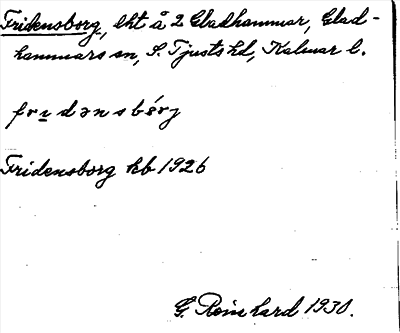 Fridensborg, lht å 2 Gladhammar, Glad-
hammars sn, S. Tjusts hd, Kalmar l.
fridənsbórj
Fridensborg kb 1926
G. Reinhard 1930.